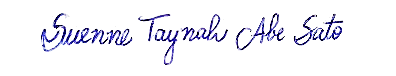 Suenne Taynah Abe Sato